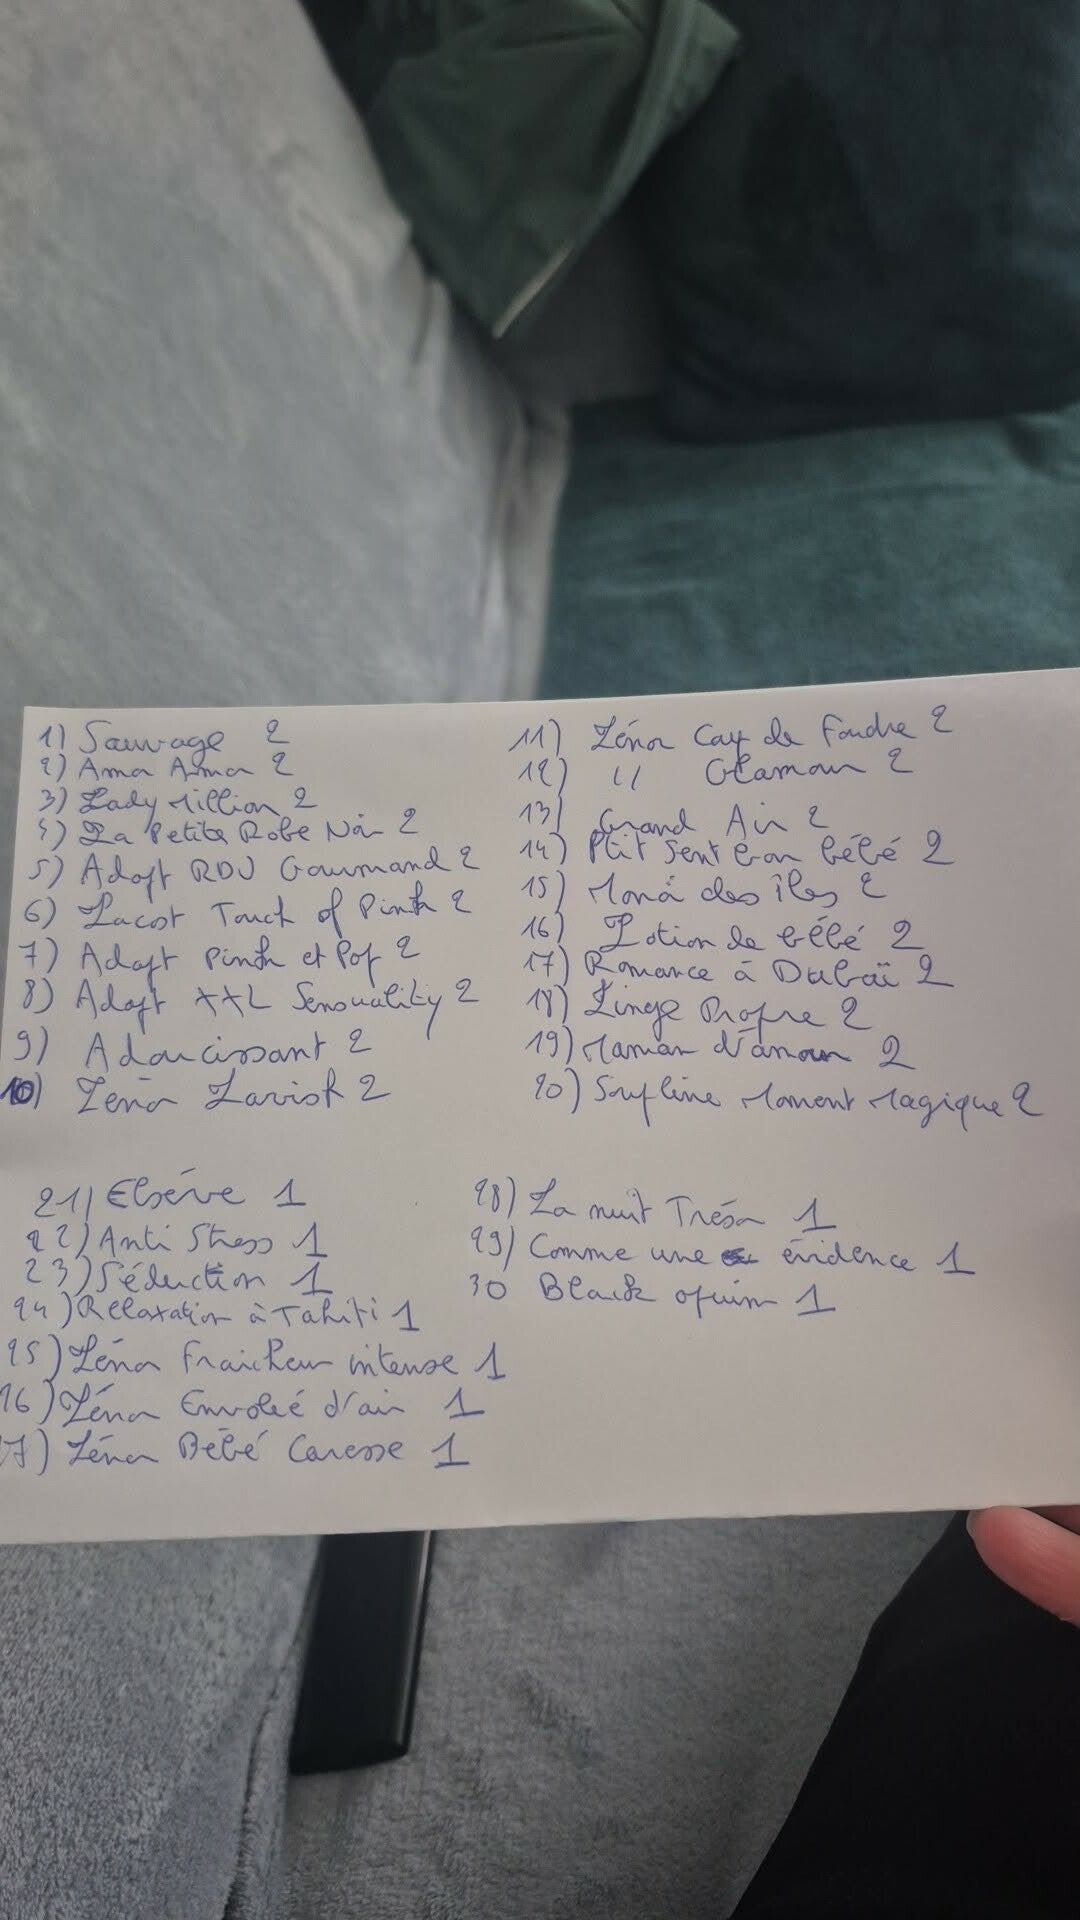 1) Sauvage 2
2) Ama Ama 2
3) Lady Million 2
4) La Petite Robe Noir 2
5) Adopt RDV Gourmand 2
6) Lacost Touch of Pink 2
7) Adopt Pink et Pop 2
8) Adopt XXL Sensuality 2
9) Adoucissant 2
10) Léna Lavish 2
11) Léna Coup de Foudre 2
12) " Glamour 2
13) Grand Air 2
14) Ptit Sent bon bébé 2
15) Monoï des îles 2
16) Lotion de bébé 2
17) Romance à Dubaï 2
18) Linge Propre 2
19) Maman d'amour 2
20) Soupline Moment Magique 2
21) Elsève 1
22) Anti Stress 1
23) Séduction 1
24) Relaxation à Tahiti 1
25) Léna Fraicheur intense 1
26) Léna Envolée d'air 1
27) Léna Bébé Caresse 1
28) La nuit Trésor 1
29) Comme une évidence 1
30 Black opium 1